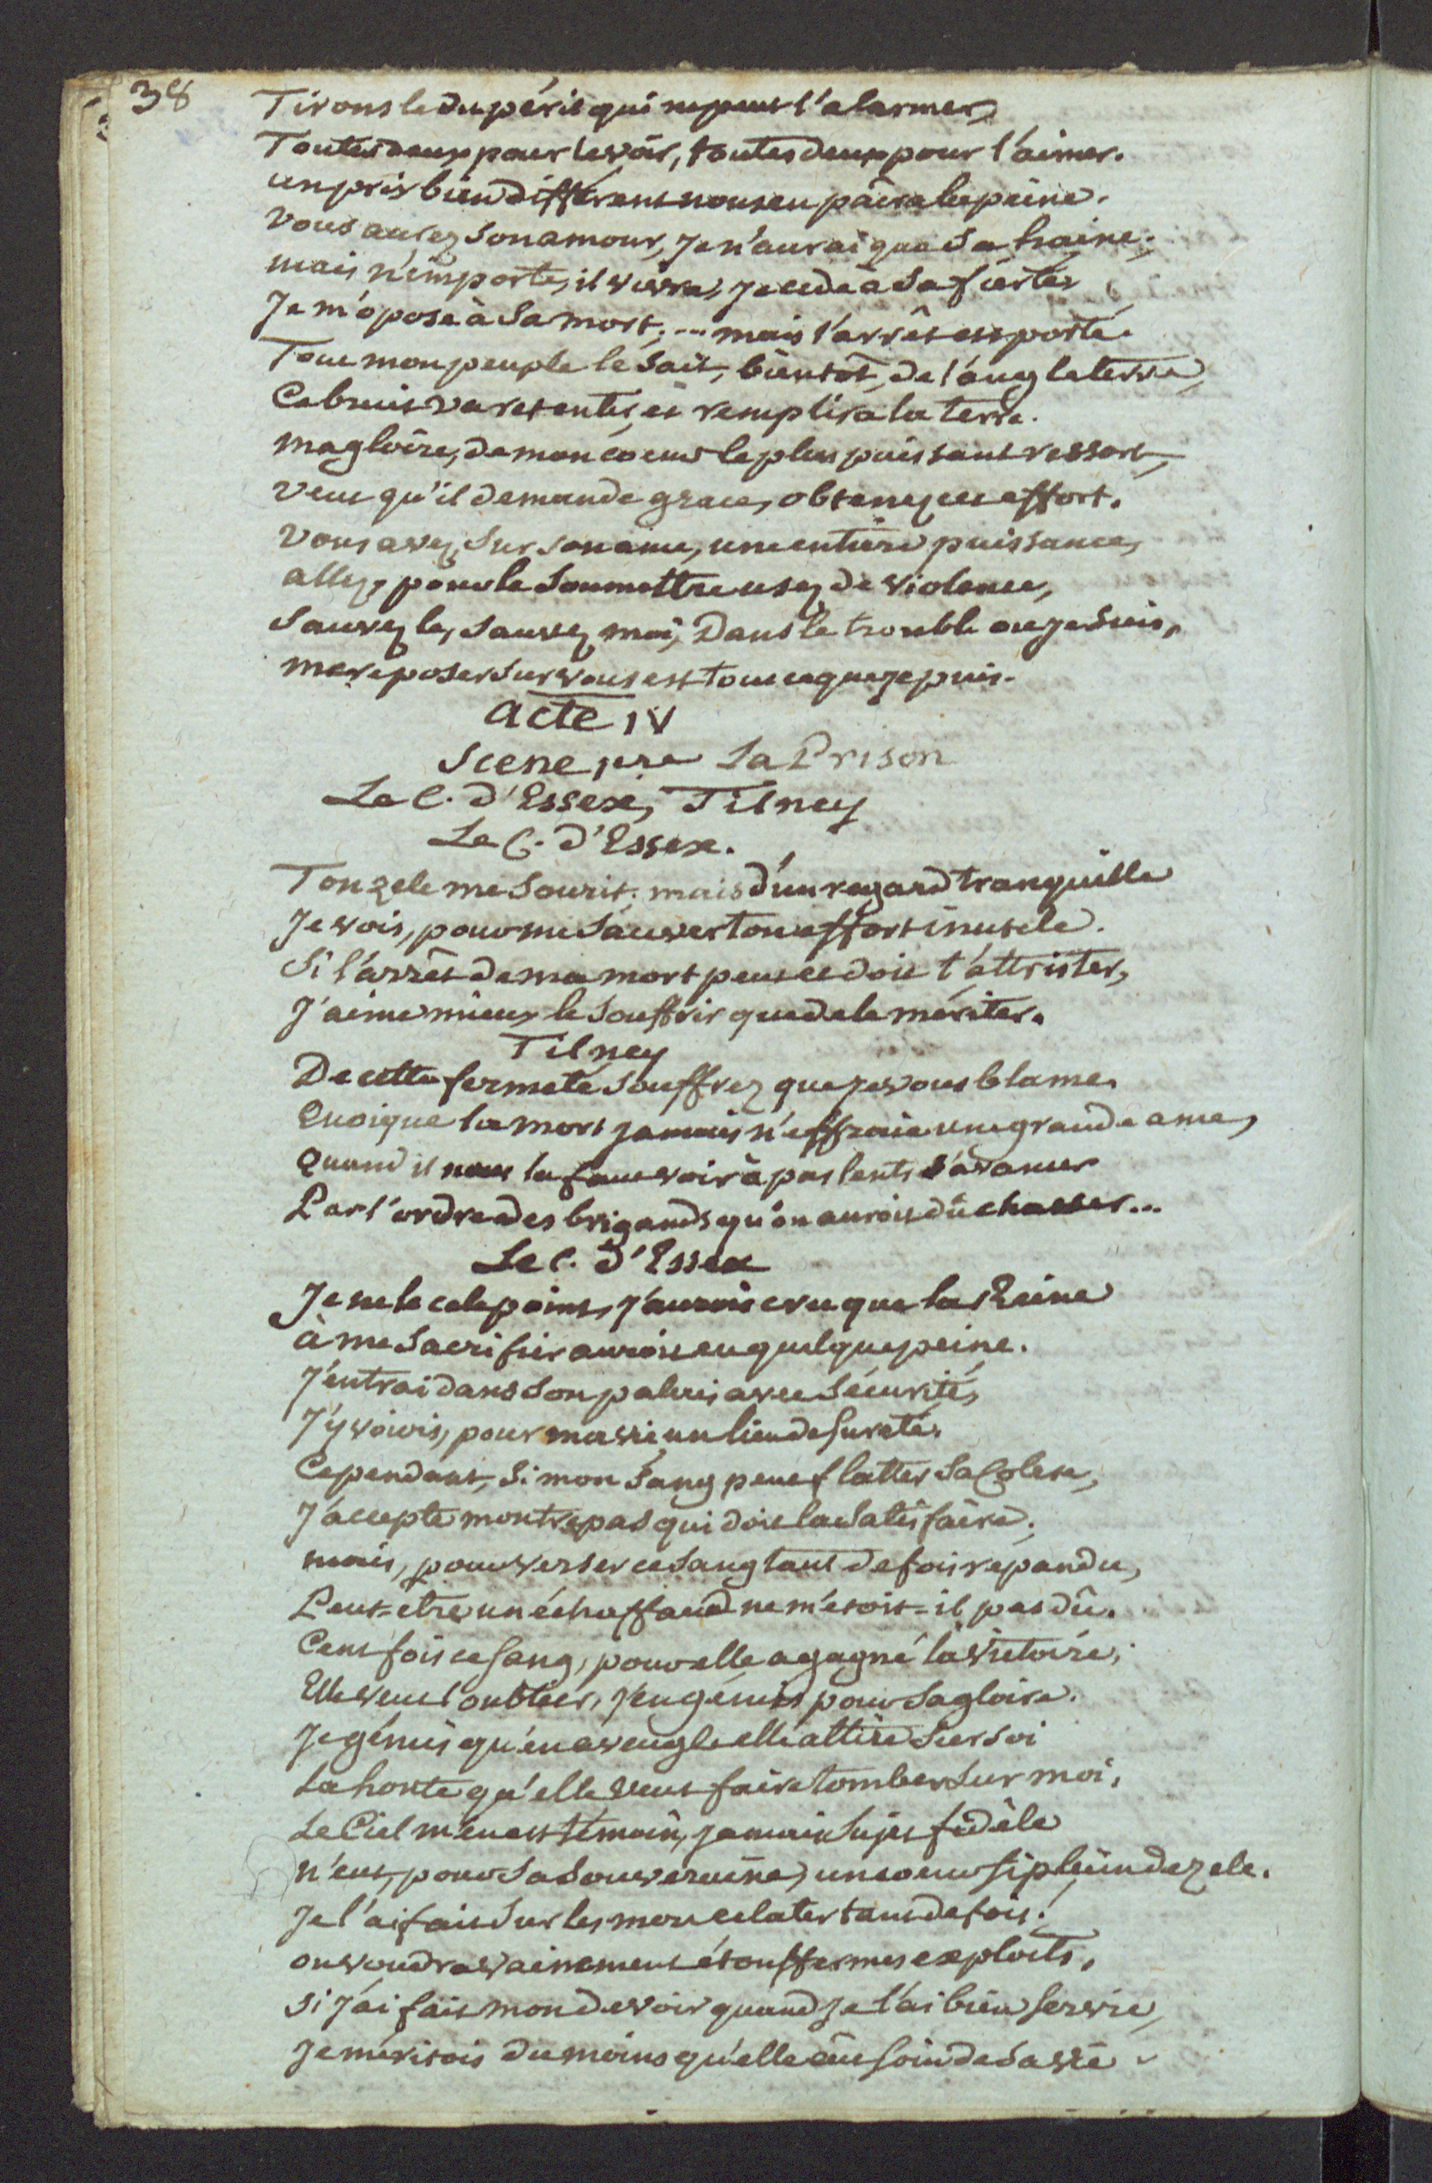 38
Tirons le du péril qui ne peut l'alarmer,
Toutes deux pour le voir, toutes deux pour l'aimer.
un prix bien différent nous en païra la peine.
Vous aurez son amour, je n'aurai que sa haine;
mais n'importe, il vivra, je cede à sa fierté,
Je m'opose à sa mort; ... mais l'arrêt est porté.
Tout mon peuple le sait, bientôt, de l'angleterre,
Ce bruit va retentir, et remplira la terre.
ma gloire, de mon coeur le plus puissant ressort,
veut qu'il demande grace, obtenez cet effort.
Vous avez, sur son ame, une entière puissance,
allez, pour le soumettre usez de violence,
Sauvez le, sauvez moi; Dans le trouble ou je suis,
me reposer sur vous est tout ce que je puis.
acte IV
Scene 1re La Prison
Le C. d'Essex, Tilney
Le C. d'Essex.
Ton zele me sourit; mais d'un regard tranquille
Je vois, pour me sauver ton effort inutile.
Si l'arrêt de ma mort peut et doit t'attrister,
J'aime mieux le souffrir que de le mériter.
Tilney
De cette fermeté souffrez que je vous blame.
Quoique la mort jamais n'effraie une grande ame,
Quand il nous la faut voir à pas lents s'avancer
Par l'ordre des brigands qu'on auroit dû chasser...
Le C. d'Essex
Je ne le cele point, j'aurois cru que la Reine
à me sacrifier auroit eu quelque peine.
J'entrai dans son palais avec sécurité,
J'y voiois, pour ma vie un lieu de sureté.
Cependant, si mon sang peut flatter sa Colere,
J'accepte mon trepas qui doit la satisfaire;
mais, pour verser ce sang tant de fois repandu,
Peut-etre un échaffaud ne m'etoit-il pas dû.
Cent fois ce sang, pour elle a gagné la victoire;
Elle veut l'oublier, j'en gémis pour sa gloire.
Je gémis qu'en aveugle elle attire sur soi
La honte qu'elle veut faire tomber sur moi.
Le Ciel m'en est témoin, jamais sujet fidèle
n'eut, pour sa souveraine, un coeur si plein de zele.
Je l'ai fait sur les mers eclater tant de fois!
on voudra vainement étouffer mes exploits,
si j'ai fait mon devoir quand je l'ai bien servie,
Je méritois du moins qu'elle eût soin de sa vie